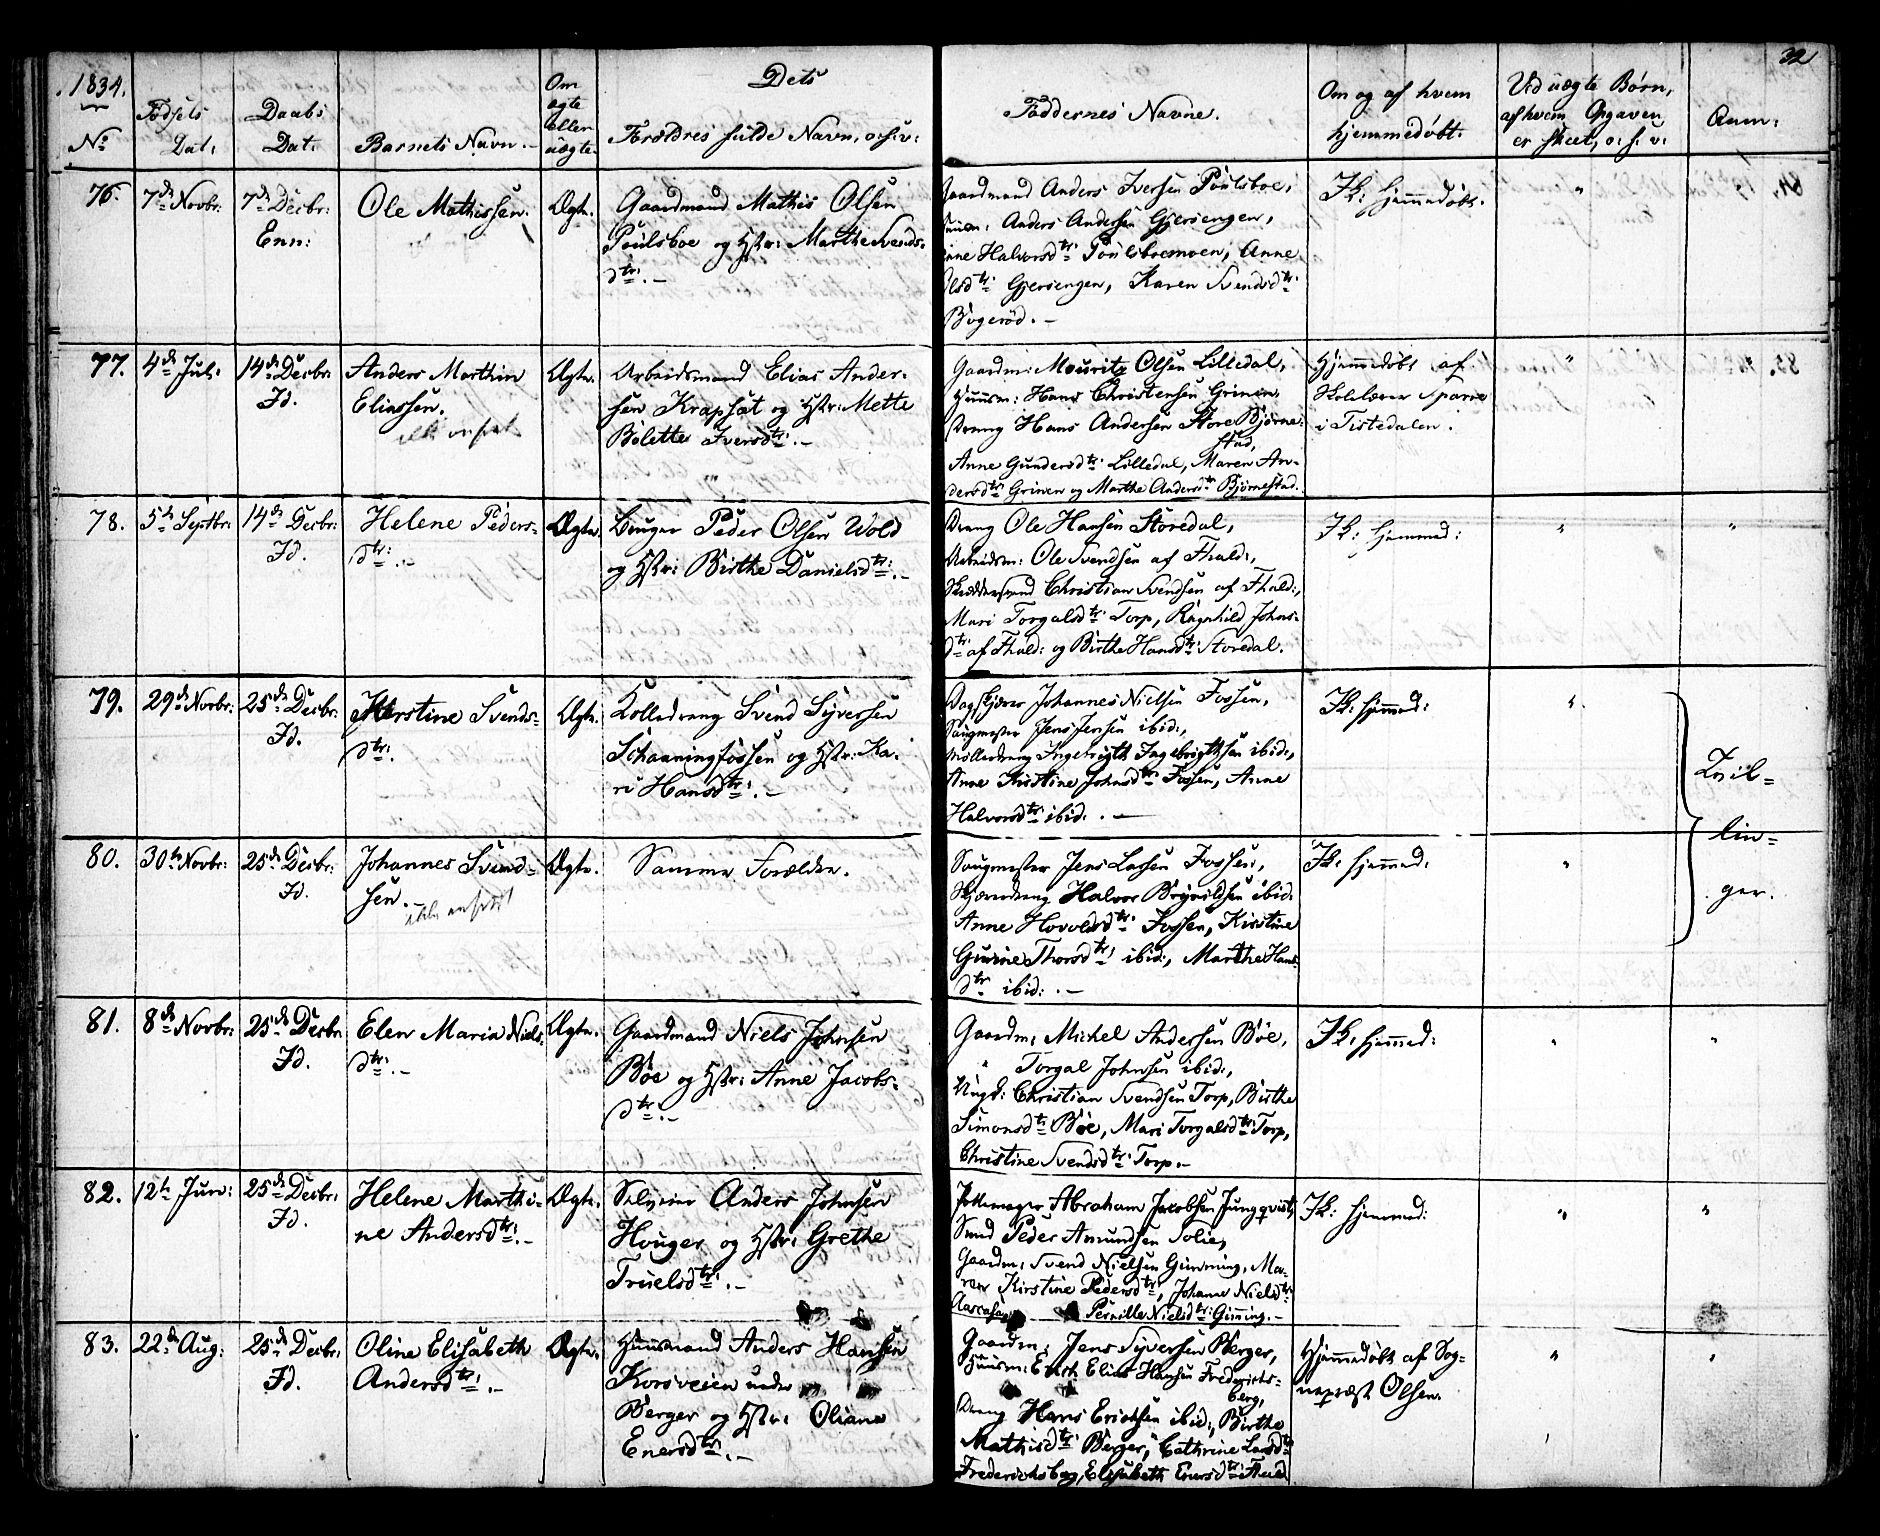 32
1834.
No
Fødsels
Dat:
Daabs
Dat:
Barnets Navn.
Om
ægte
eller
uægte.
Dets
Forældres fulde Navn, o:s:v:
Faddernes Navne.
Om og af hvem
hjemmedøbt.
Ved uægte Børn,
af hvem Opgaven
er skeet, o: s: v:
Anm:
76. 7de Novbr: 7de Decbr: Ole Mathissen. Ægte. Gaardmand Mathis Olsen
Enn:
Poulsboe og Hstr: Marthe Svends-
dtr: .-
Gaardmand Anders Iversen Poulsboe,
Anders Andersen Gjersengen,
Halvorsdtr: Poulsboemoen, Anne
Gjersengen, Karen Svendsdtr:
Bogerød. -
Ik: hjemmedøbt.
"
77. 4de Jul: 14de Decbr: Anders Marthin Ægte. Arbeidsmand Elias Ander-
Id.
Eliassen.
sen Krapføt og Hstr: Mette
Bolette Iversdtr: .-
Gaardm: Mouritz Olsen Lilledal,
Huusm: Hans Christensen Grinen,
Dreng Hans Andersen Store Bjørne-
stad,
Anne Gundersdtr: Lilledal, Maren An-
dersdtr: Grinen og Marthe Andersdtr: Bjørnestad.
Hjemmedøbt af
Skolelærer Sparre
i Tistedalen.
"
78. 5te Septbr: 14de Decbr: Helene Peders- Ægte. Bruger Peder Olsen Wold
Id.
dtr: .-
og Hstr: Birthe Danielsdtr: .-
Dreng Ole Hansen Storedal,
Arbeidsm: Ole Svendsen af Fhald:,
Skræddersvend Christian Svendsen af Fhald:,
Mari Torgalsdtr: Torp, Ragnhild Johns-
dtr: af Fhald: og Birthe Hansdtr: Storedal.
Ik: hjemmed:
" "
79. 29de Novbr: 25de Decbr: Kerstine Svends- Ægte. Svend Syversen
Id.
dtr:
Schaaningfossen og Hstr: Ka-
ri Hansdtr: .-
Johannes Nielsen Fossen,
Saugmester Jens Jensen ibid:,
Mølledreng Ingebrigth Ingebrigthsen ibid:,
Anne Kirstine Johnsdtr: Fossen, Anne
Halvorsdtr: ibid: . -
Ik: hjemmed:
"
Tvil-
lin-
ger.
80. 30te Novbr: 25de Decbr: Johannes Svend- Ægte. Samme Forældre.
Id.
sen. -
Saugmester Jens Larsen Fossen,
Halvor ibid:
Anne Fossen, Kirstine
Thorsdtr: ibid:, Marthe Hans-
dtr: ibid: . -
Ik: hjemmed:
"
81. 8de Novbr: 25de Decbr: Elen Maria Niels- Ægte. Gaardmand Niels Johnsen
Id.
dtr: .-
Bøe og Hstr: Anne Jacobs-
dtr: .-
Gaardm: Michel Andersen Bøe,
" Torgal Johnsen ibid:,
Ungk: Christian Svendsen Torp, Birthe
Simonsdtr: Bøe, Mari Torgalsdtr: Torp,
Christine Svendsdtr: Torp.-
Ik: hjemmed:
" "
82. 12te Jun: 25de Decbr: Helene Marthi- Ægte. Anders Johnsen
Id.
ne Andersdtr: .-
Houger og Hstr: Grethe
Truelsdtr: .-
Pottemager Abraham Jacobsen Jungqvist,
Smed Peder Amundsen Solie,
Gaardm: Svend Nielsen Gimming, Ma-
ren Kirstine Pedersdtr:, Johanne Nielsdtr:
Pernille Nielsdtr: Gimming.-
Ik: hjemmed:
" "
83. 22de Aug: 25de Decbr: Oline Elisabeth Ægte. Huusmand Anders Hansen
Id.
Andersdtr: .-
Korsveien under
Berger og Hstr: Oliane
Enersdtr: .-
Gaardm: Jens Syversen Berger,
Huusm: Elias Hansen Frederichs-
berg,
Dreng Hans Erichsen ibid:, Birthe
Mathisdtr: Berger, Cathrine Larsdtr:
Frederichsberg, Elisabeth Enersdtr:
Hjemmedøbt af Sog-
nepræst Olsen.
" "